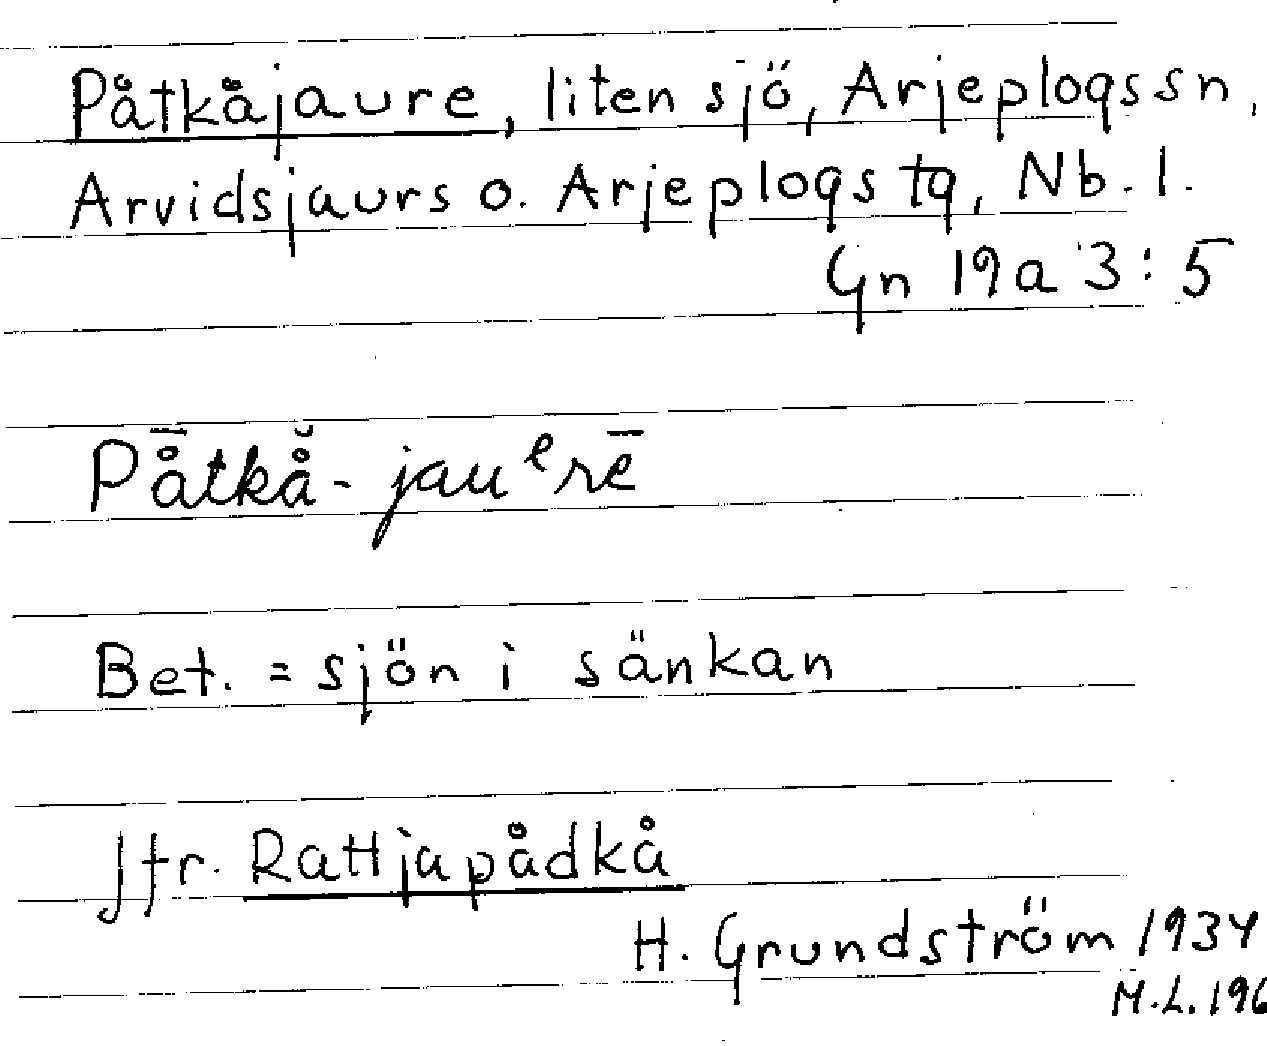 Påtkåjaure, liten sjö, Arjeplogs sn,
Arvidsjaurs o. Arjeplogs tg, Nb. l.
Gn 19a 3:5
På̄tkå̆-jauᵉrē
Bet. = sjön i sänkan
Jfr. Rattjapådkå
H. Grundström 1934
M.L. 196